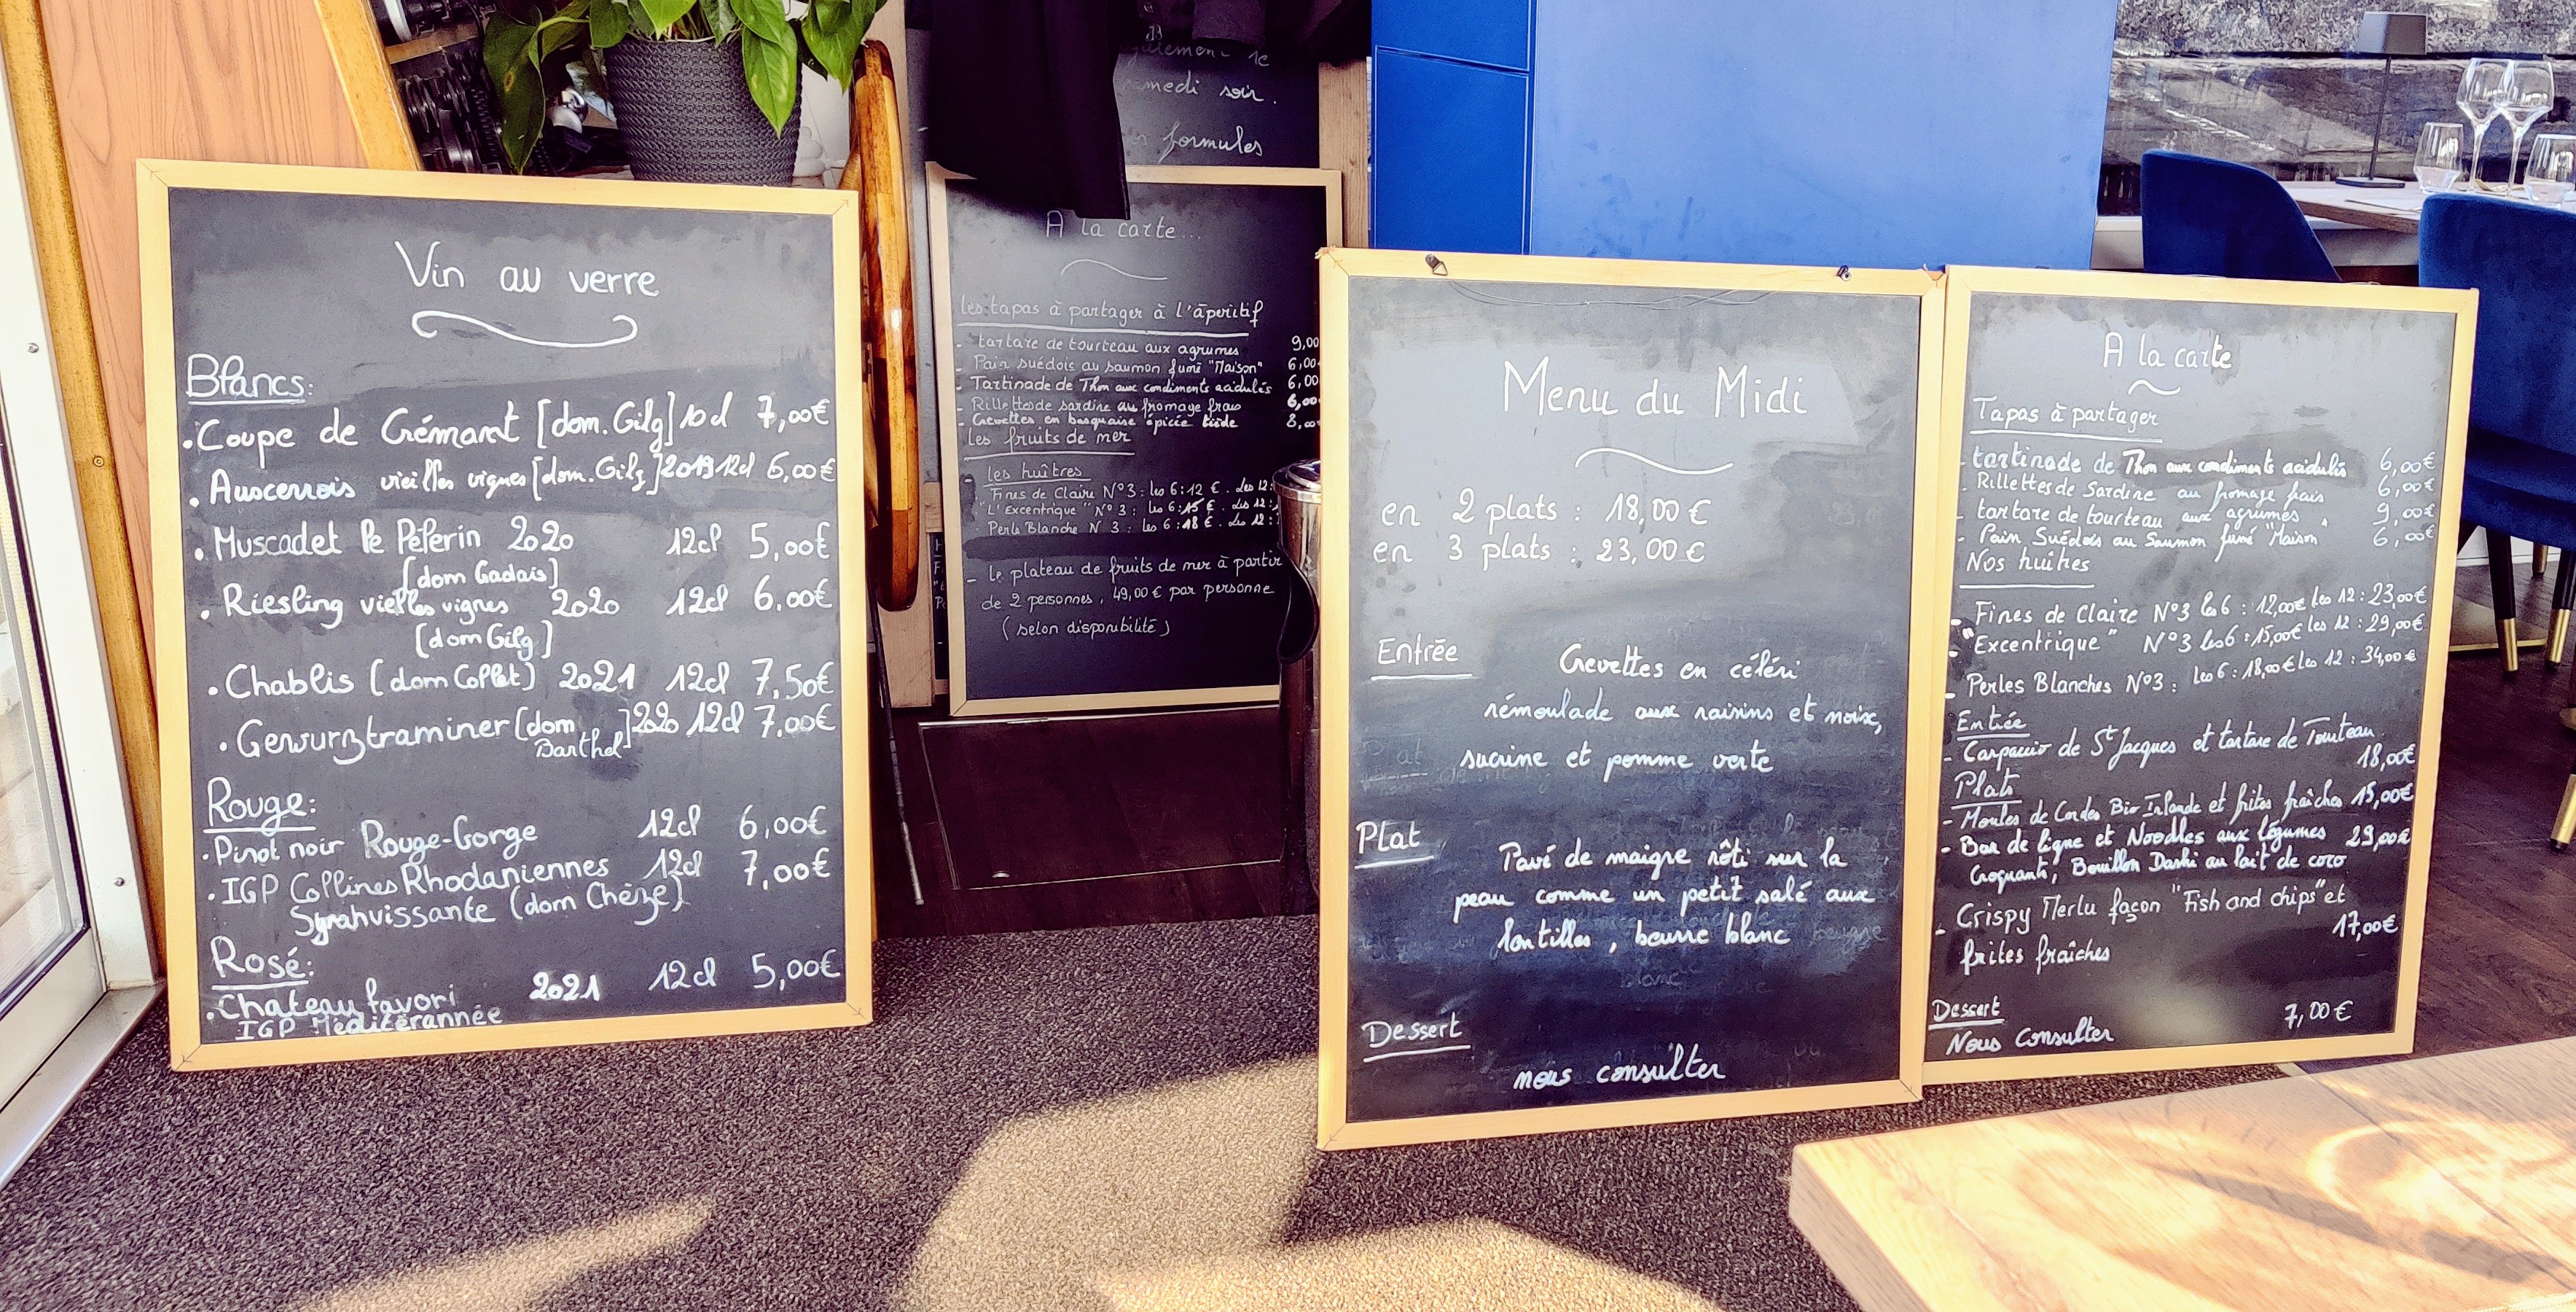 Vin au verre
Blancs:
• Coupe de Crémant [dom. Gilg] 10cl 7,00€
• Auxerrois vieilles vignes [dom. Gilg] 2019 12cl 6,00€
• Muscadet le Pélerin 2020 12cl 5,00€
[dom Gadais]
• Riesling vieilles vignes 2020 12cl 6.00€
[dom Gilg]
• Chablis (dom Collet) 2021 12cl 7,50€
• Gewurztraminer [dom Barthel] 2020 12cl 7.00€
Rouge:
• Pinot noir Rouge-Gorge 12cl 6,00€
• IGP Collines Rhodaniennes 12cl 7,00€
Syrahvissante (dom Chèze)
Rosé:
• Chateau favori 2021 12cl 5,00€
IGP Méditérannée
également le
medi soir.
formules
A la carte...
les tapas à partager à l'apéritif
- tartare de tourteau aux agrumes 9,00
- Pain suédois au saumon fumé "Maison" 6,00
- Tartinade de Thon aux condiments acidulés 6,00
- Rillettes de sardine au fromage frais 6,00
- Crevettes en basquaise épicée tiède 8,00
les fruits de mer
- les huîtres
Fines de Claire N°3 : les 6 : 12 € . Les 12 :
"L'Excentrique" N°3 : les 6 : 15 € . Les 12 :
Perle Blanche N 3 : les 6 : 18 € . Les 12 :
- le plateau de fruits de mer à partir
de 2 personnes, 49,00 € par personne
(selon disponibilité)
Menu du Midi
en 2 plats : 18,00 €
en 3 plats : 23,00 €
Entrée
Crevettes en céléri
rémoulade aux raisins et noix,
sucrine et pomme verte
Plat
Pavé de maigre rôti sur la
peau comme un petit salé aux
lentilles, beurre blanc
Dessert
nous consulter
A la carte
Tapas à partager
- tartinade de Thon aux condiments acidulés 6,00€
- Rillettes de Sardine au fromage frais 6,00€
- tartare de tourteau aux agrumes 9,00€
- Pain Suédois au Saumon fumé "Maison 6,00€
Nos huîtres
- Fines de Claire N°3 les 6 : 12,00€ les 12 : 23,00€
- "Excentrique" N°3 les 6 : 15,00€ les 12 : 29,00€
- Perles Blanches N°3 : les 6 : 18,00€ les 12 : 34,00€
Entrée
- Carpaccio de St Jacques et tartare de Tourteau
18,00€
Plats
- Moules de Cordes Bio Irlande et frites fraîches 15,00€
- Bar de ligne et Noodles aux légumes 29,00€
Croquants, Bouillon Dashi au lait de coco
- Crispy Merlu façon "Fish and chips" et
17,00€
frites fraîches
Dessert 7,00€
Nous Consulter